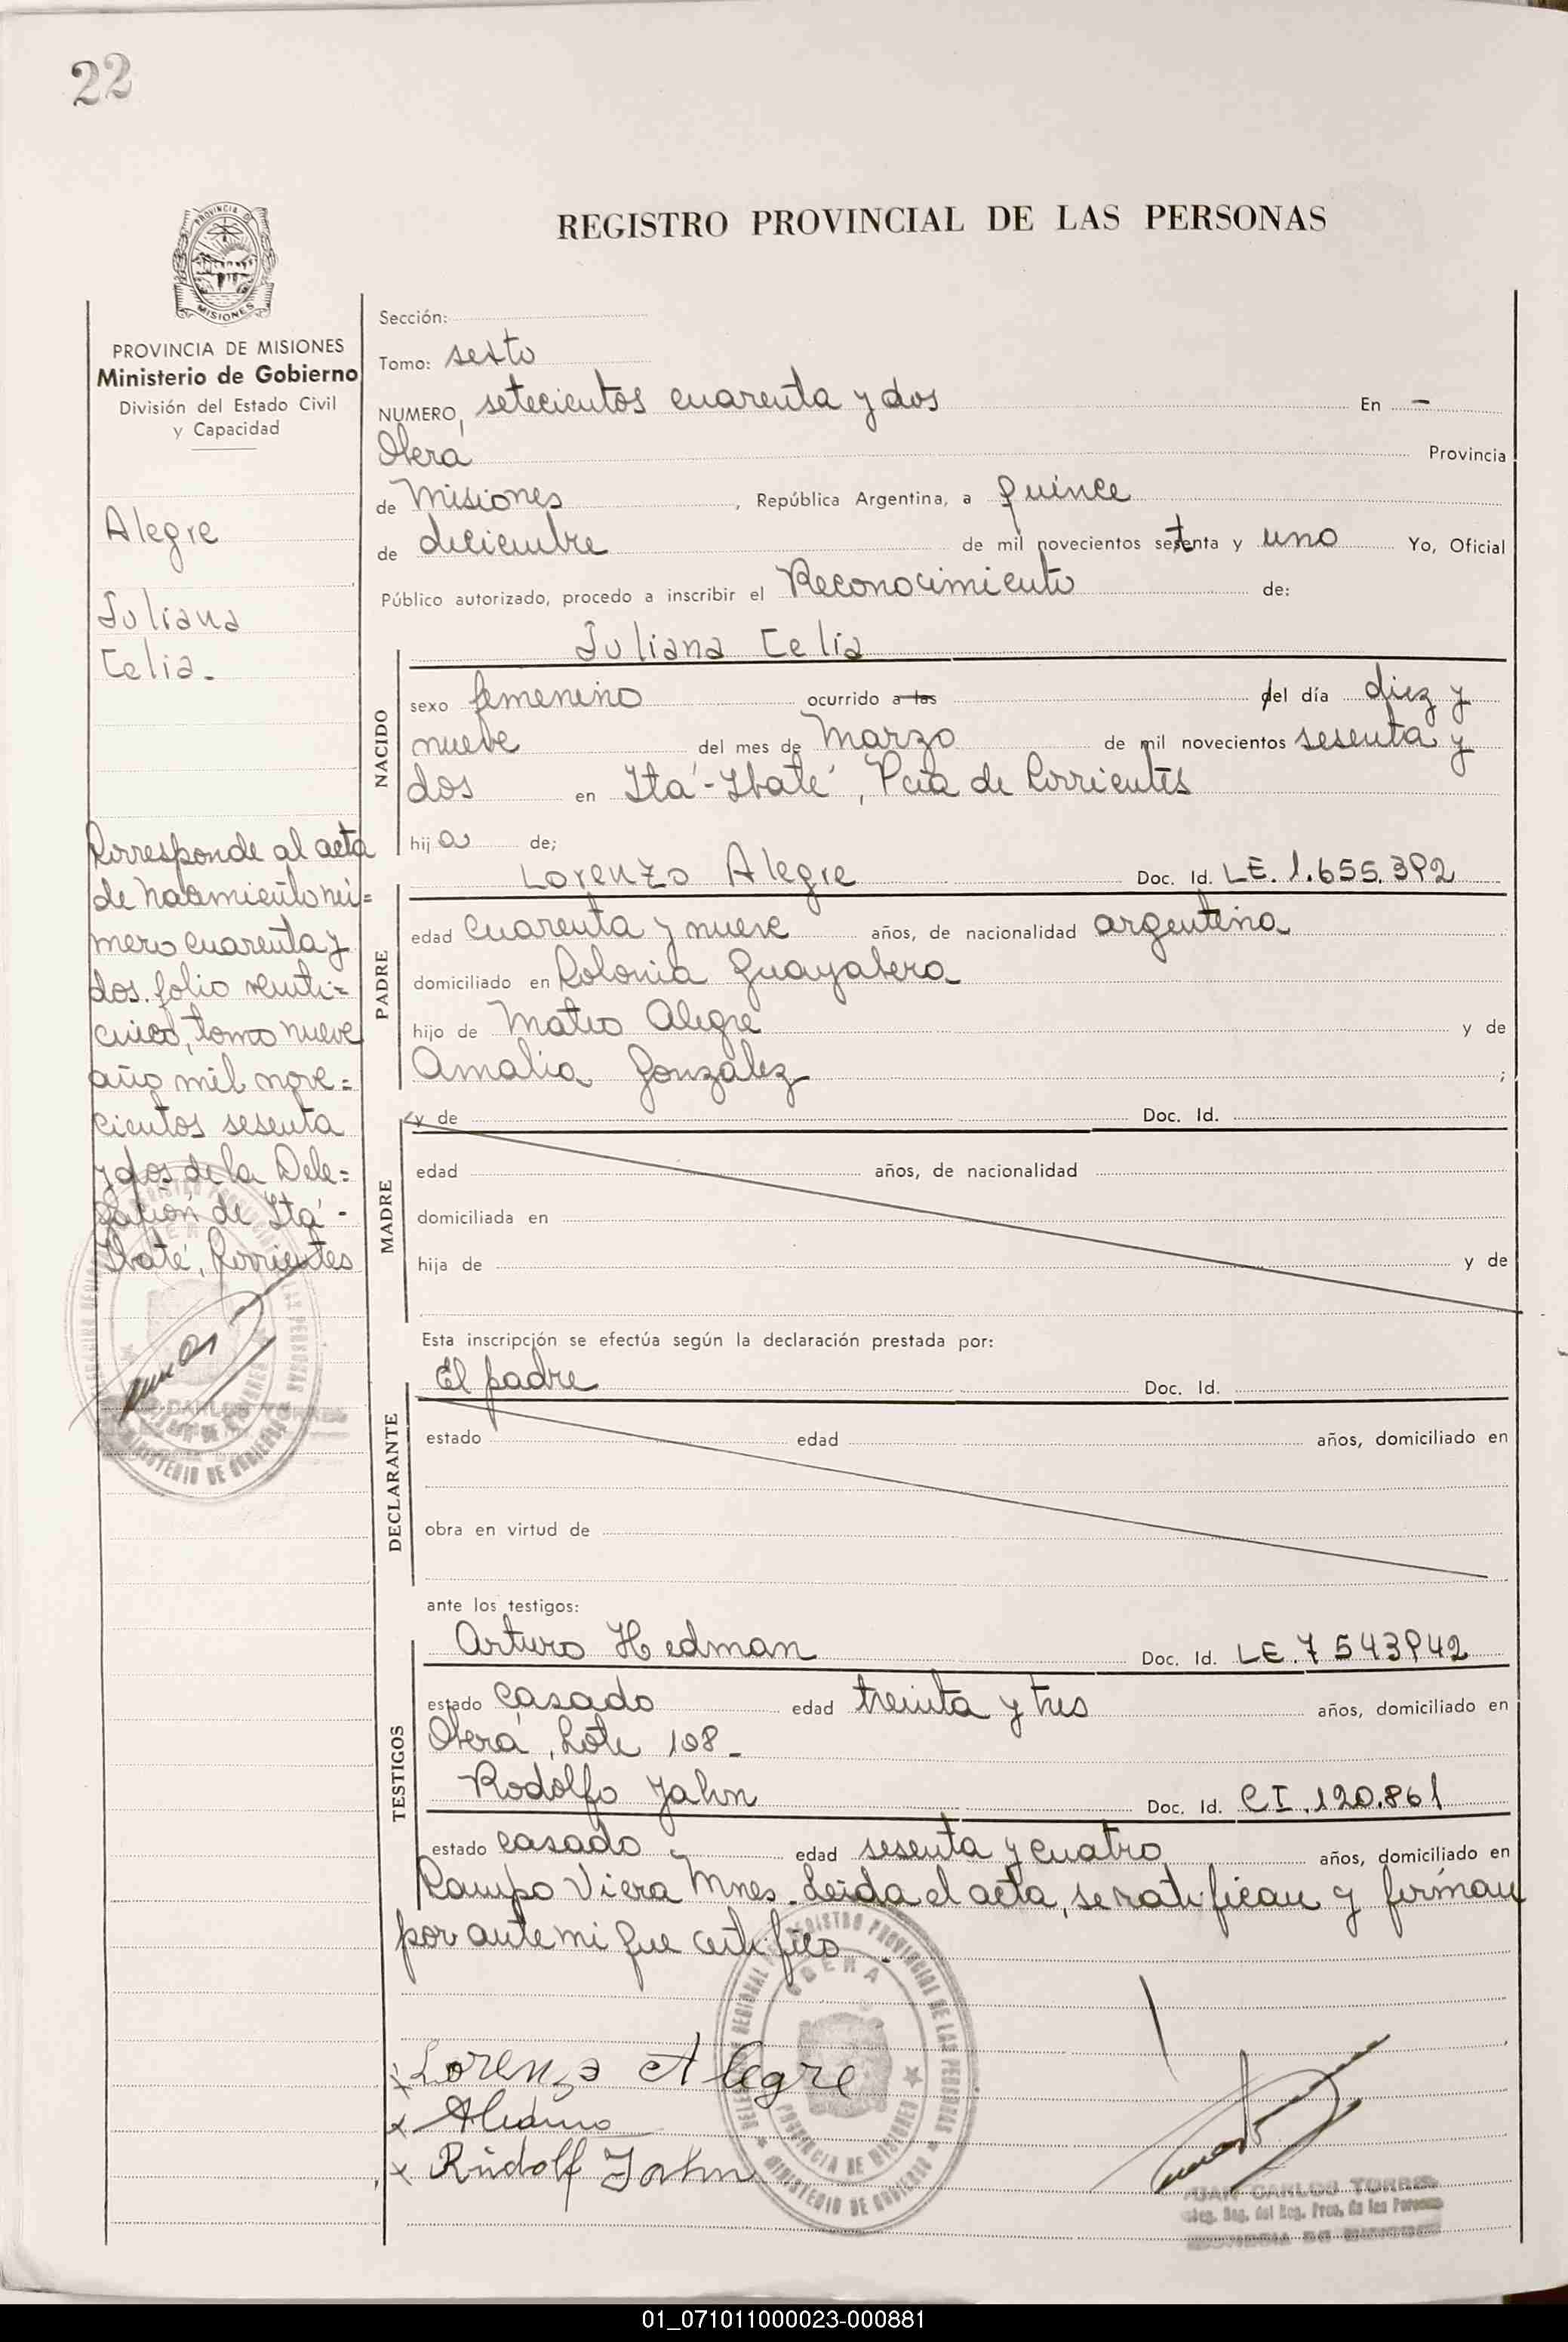 22
REGISTRO PROVINCIAL DE LAS PERSONAS
PROVINCIA DE MISIONES
PROVINCIA DE MISIONES
Ministerio de Gobierno
División del Estado Civil
y Capacidad
Alegre
Juliana
Celia.
Corresponde al acta
de nacimiento nú=
mero cuarenta y
dos. folio venti=
cinco, tomo nueve
año mil nove=
cientos sesenta
y dos de la Dele=
gación de Itá-
Ibaté, Corrientes
Sección:
Tomo: sexto
NUMERO, setecientos cuarenta y dos En -
Oberá Provincia
de Misiones, República Argentina, a quince
de diciembre de mil novecientos setenta y uno Yo, Oficial
Público autorizado, procedo a inscribir el Reconocimiento de:
Juliana Celia
NACIDO
sexo femenino ocurrido a las del día diez y
nueve del mes de Marzo de mil novecientos sesenta y
dos en Itá-Ibaté, Pcia de Corrientes
hija de;
PADRE
Lorenzo Alegre Doc. Id. LE. 1.655.392
edad cuarenta y nueve años, de nacionalidad argentina
domiciliado en Colonia Guayabera
hijo de Mateo Alegre y de
Amalia González ;
MADRE
y de Doc. Id.
edad años, de nacionalidad
domiciliada en
hija de y de
Esta inscripción se efectúa según la declaración prestada por:
DECLARANTE
El padre Doc. Id.
estado edad años, domiciliado en
obra en virtud de
ante los testigos:
TESTIGOS
Arturo Hedman Doc. Id. LE. 7543942
estado casado edad treinta y tres años, domiciliado en
Oberá, Lote 108-
Rodolfo Jahn Doc. Id. CI. 120.861
estado casado edad sesenta y cuatro años, domiciliado en
Campo Viera Mnes. Leída el acta, se ratifican y firman
por ante mi que certifico.
x Lorenzo Alegre
x
x Rudolf Jahn
REGIONAL REGISTRO PROVINCIAL DE LAS PERSONAS
OBERA
PROVINCIA DE MISIONES
MINISTERIO DE GOBIERNO
JUAN CARLOS TORRES
Deleg. Reg. del Reg. Prov. de las Personas
PROVINCIA DE MISIONES
01_071011000023-000881